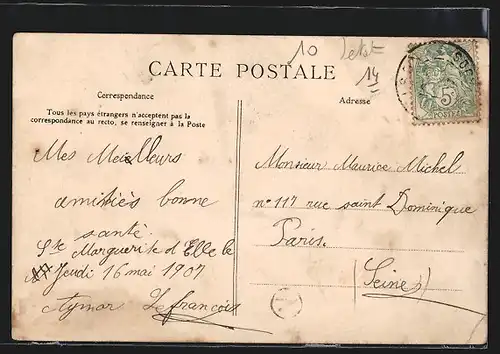 10
14
CARTE POSTALE
Correspondance
Tous les pays étrangers n'acceptent pas la
correspondance au recto, se renseigner à la Poste
Adresse
5
POSTES
Mes Meilleurs
amitiés bonne
santé.
Ste Marguerite d'Elle le
Jeudi 16 mai 1907
Aymar Lefrancois
Monsieur Maurice Michel
n° 117 rue saint Dominique
Paris.
(Seine)